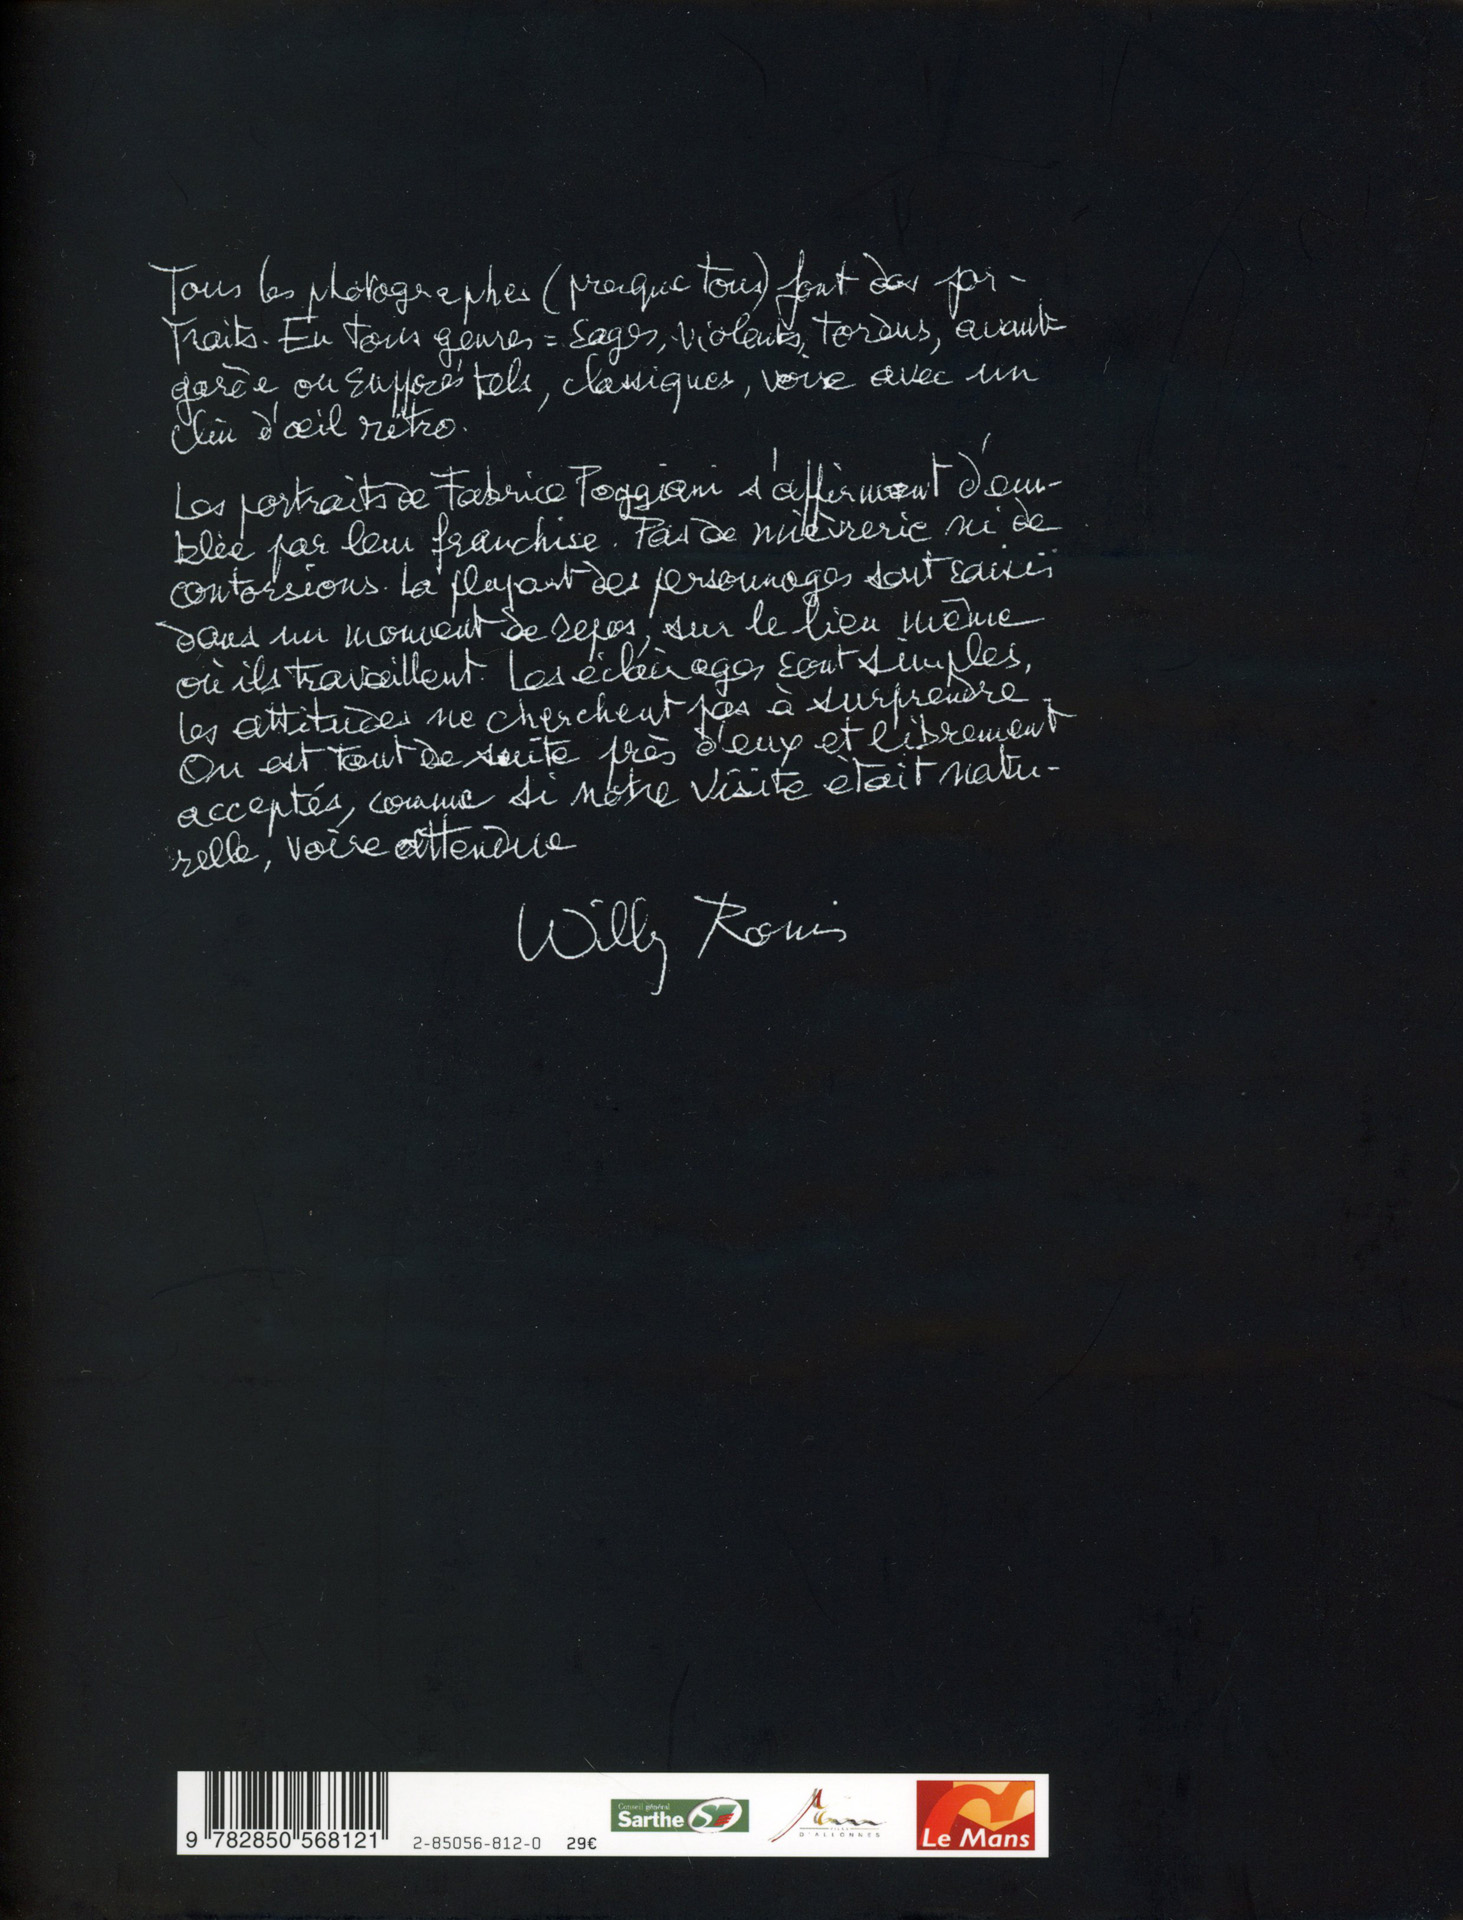 Tous les photographes (presque tous) font des por-
traits. En tous genres = sages, violents, tordus, avant-
garde ou supposés tels, classiques, voire avec un
clin d'œil rétro.
Les portraits de Fabrice Poggiani s'affirment d'em-
blée par leur franchise. Pas de mièvrerie ni de
contorsions. La plupart des personnages sont saisis
dans un moment de repos, sur le lieu même
où ils travaillent. Les éclairages sont simples,
les attitudes ne cherchent pas à surprendre.
On est tout de suite près d'eux et librement
acceptés, comme si notre visite était natu-
relle, voire attendue
Willy Ronis
9 782850 568121
2-85056-812-0
29€
Conseil général
Sarthe
VILLE
D'ALLONNES
Le Mans